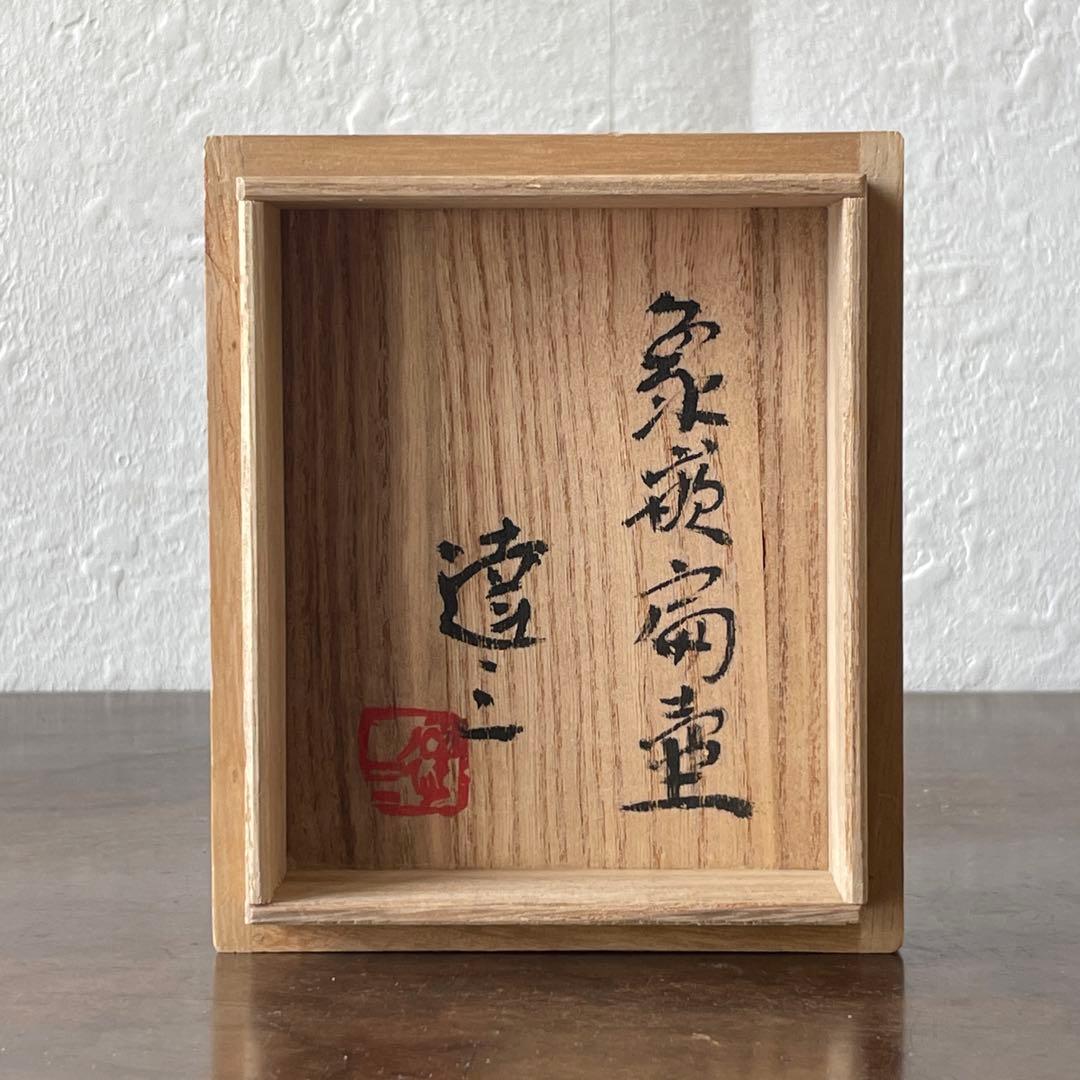 象嵌扁壷
達三